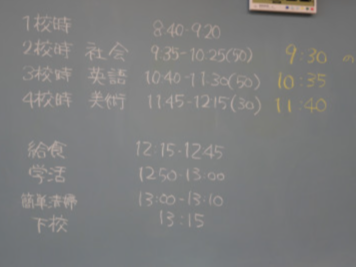 1校時 8:40-9:20
2校時 社会 9:35-10:25(50) 9:30 の
3校時 英語 10:40-11:30(50) 10:35
4校時 美術 11:45-12:15(30) 11:40
給食 12:15-12:45
学活 12:50-13:00
簡単清掃 13:00-13:10
下校 13:15